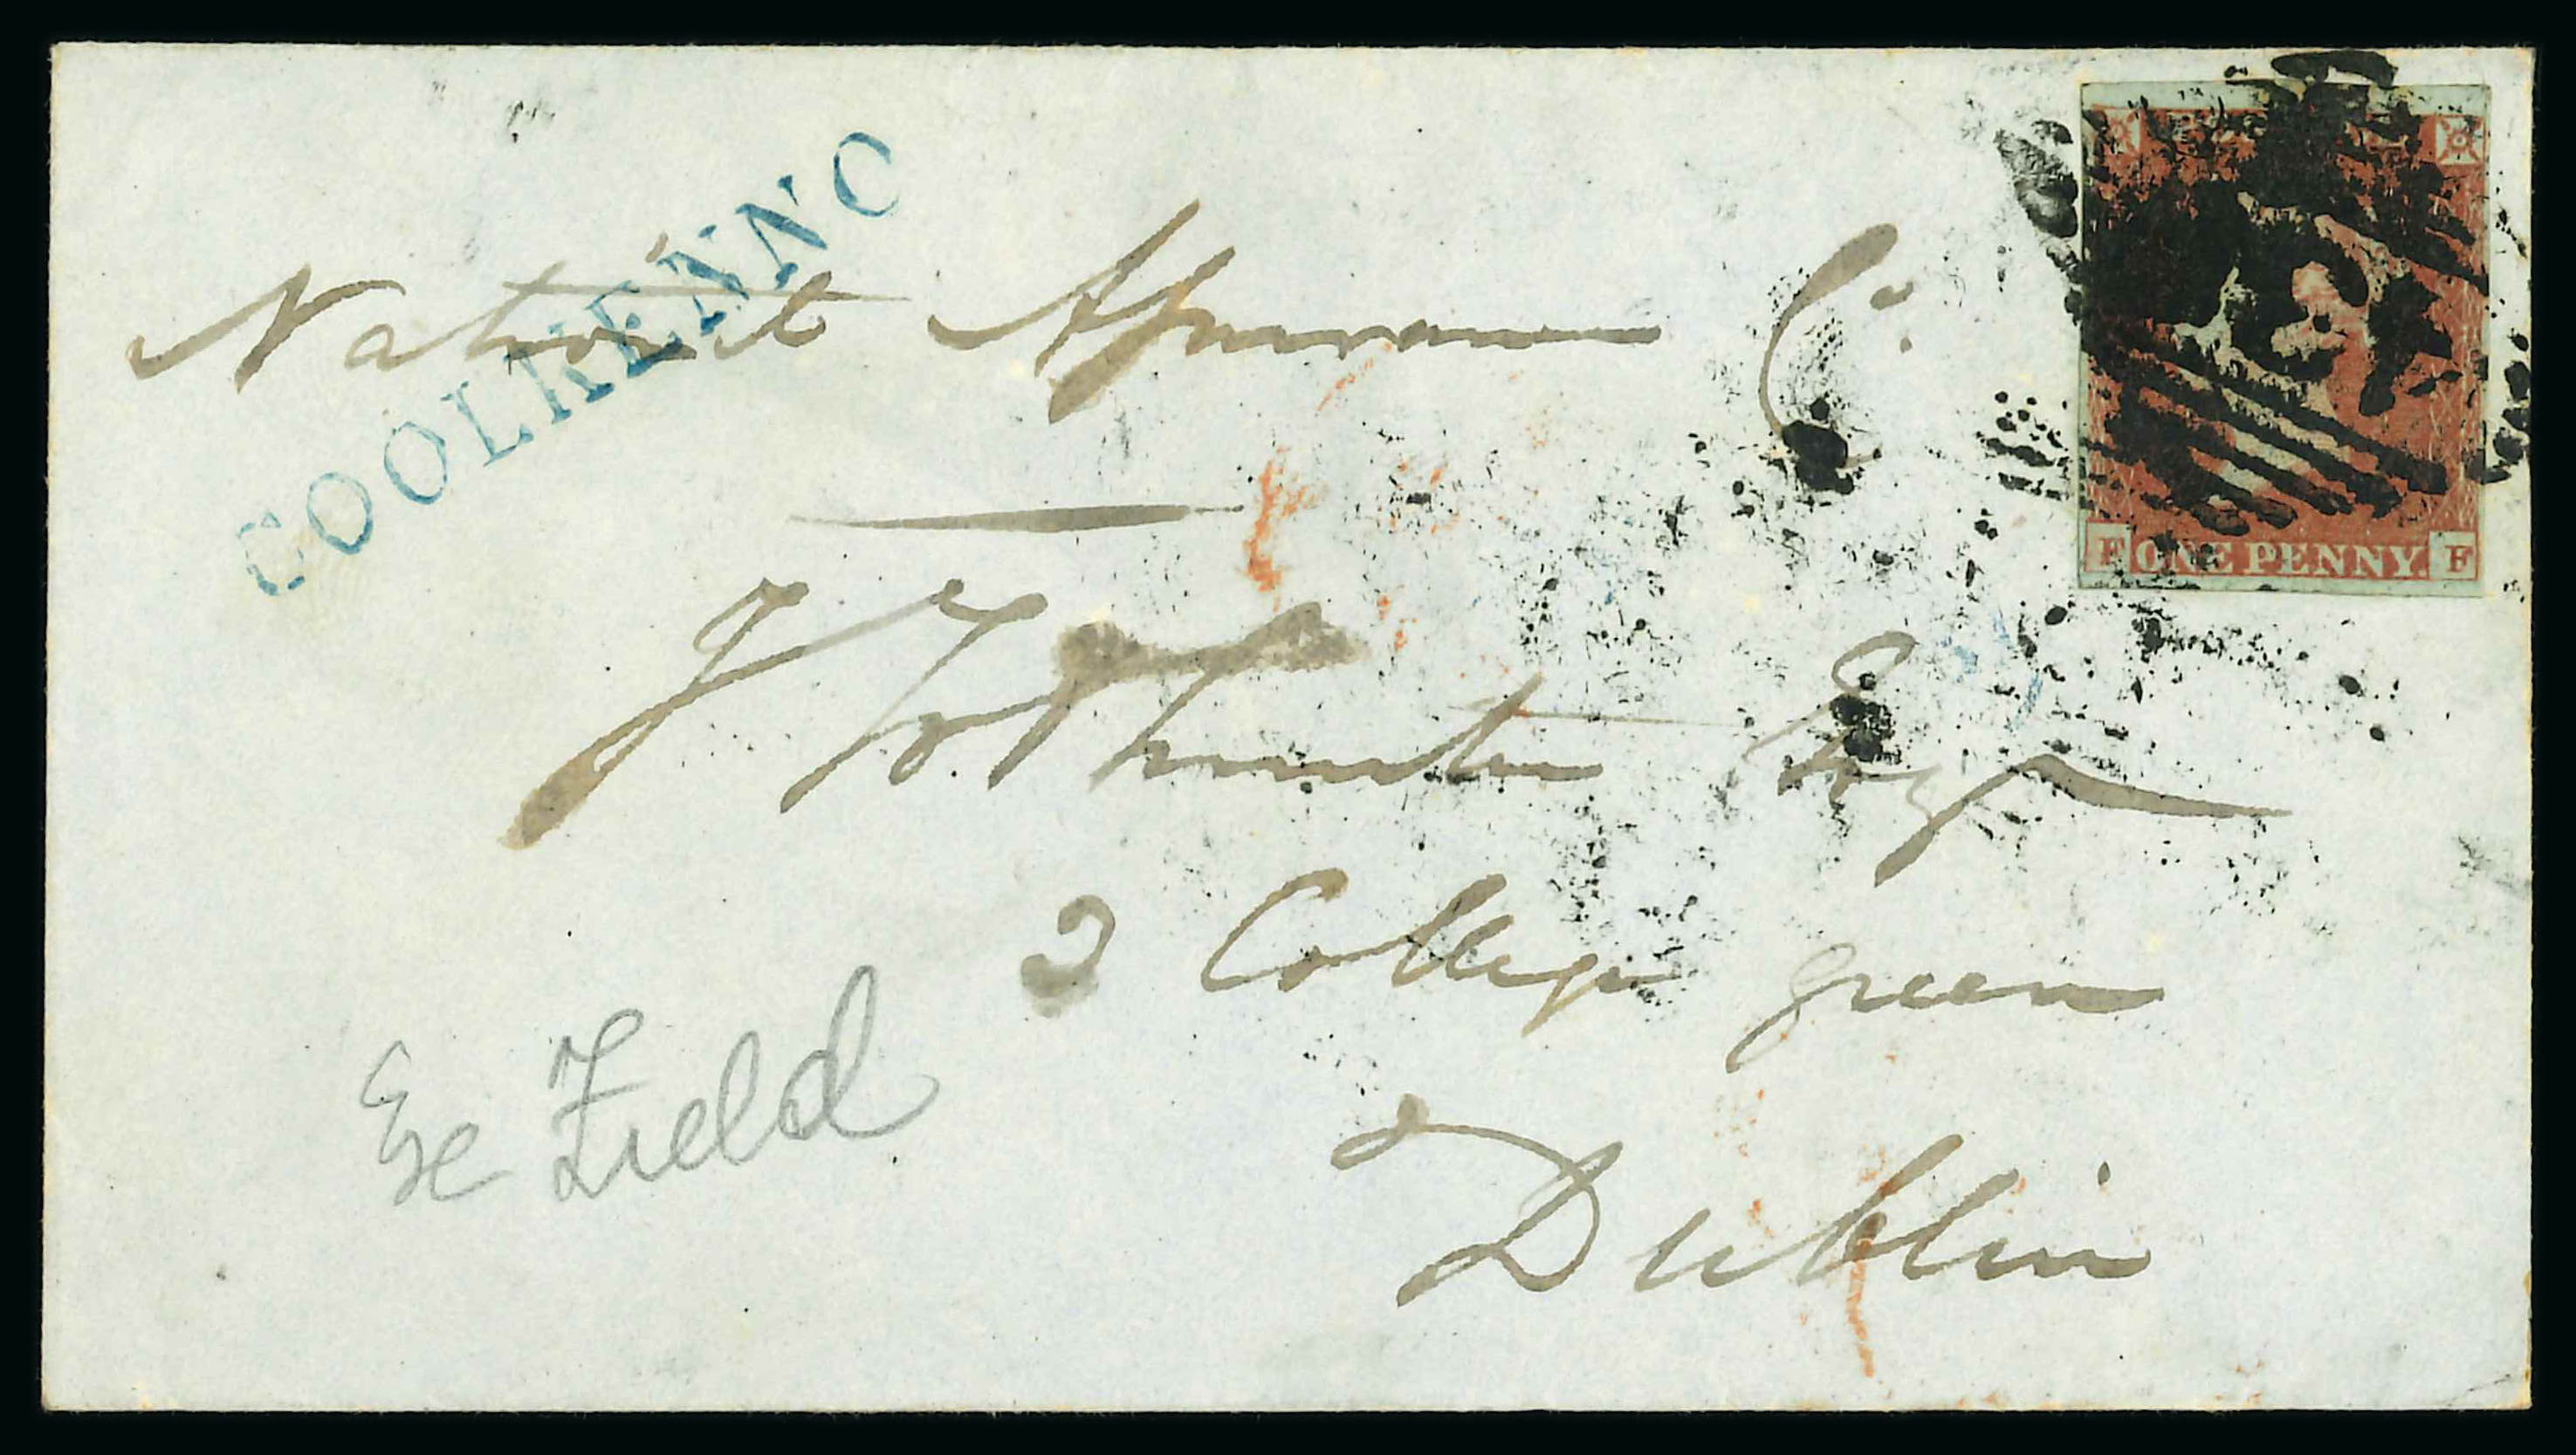 COOLKENNO
National Assurance Co.
J T Hunter Esq
3 College green
Dublin
Ex Field
F ONE PENNY. F